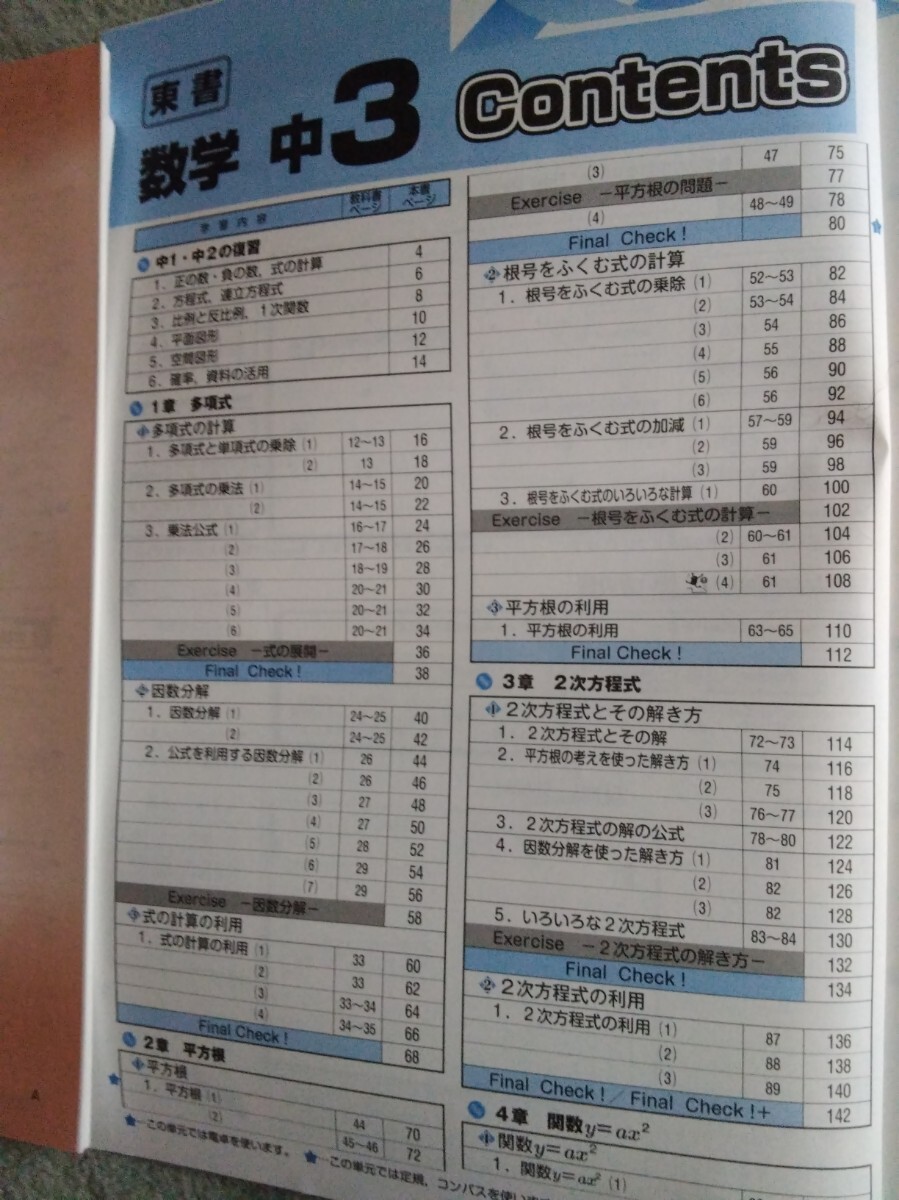 東書
数学 中3 Contents
学習内容 教科書ページ 本書ページ
中1・中2の復習
1．正の数・負の数，式の計算 4
2．方程式，連立方程式 6
3．比例と反比例，1次関数 8
4．平面図形 10
5．空間図形 12
6．確率，資料の活用 14
1章 多項式
1 多項式の計算
1．多項式と単項式の乗除 (1) 12～13 16
(2) 13 18
2．多項式の乗法 (1) 14～15 20
(2) 14～15 22
3．乗法公式 (1) 16～17 24
(2) 17～18 26
(3) 18～19 28
(4) 20～21 30
(5) 20～21 32
(6) 20～21 34
Exercise －式の展開－ 36
Final Check！ 38
2 因数分解
1．因数分解 (1) 24～25 40
(2) 24～25 42
2．公式を利用する因数分解 (1) 26 44
(2) 26 46
(3) 27 48
(4) 27 50
(5) 28 52
(6) 29 54
(7) 29 56
Exercise －因数分解－ 58
3 式の計算の利用
1．式の計算の利用 (1) 33 60
(2) 33 62
(3) 33～34 64
(4) 34～35 66
Final Check！ 68
2章 平方根
1 平方根
1．平方根 (1) 44 70
(2) 45～46 72
★…この単元では電卓を使います。 ★…この単元では定規，コンパスを使い
(3) 47 75
Exercise －平方根の問題－ 77
(4) 48～49 78
Final Check！ 80
2 根号をふくむ式の計算
1．根号をふくむ式の乗除 (1) 52～53 82
(2) 53～54 84
(3) 54 86
(4) 55 88
(5) 56 90
(6) 56 92
2．根号をふくむ式の加減 (1) 57～59 94
(2) 59 96
(3) 59 98
3．根号をふくむ式のいろいろな計算 (1) 60 100
Exercise －根号をふくむ式の計算－ 102
(2) 60～61 104
(3) 61 106
(4) 61 108
3 平方根の利用
1．平方根の利用 63～65 110
Final Check！ 112
3章 2次方程式
1 2次方程式とその解き方
1．2次方程式とその解 72～73 114
2．平方根の考えを使った解き方 (1) 74 116
(2) 75 118
(3) 76～77 120
3．2次方程式の解の公式 78～80 122
4．因数分解を使った解き方 (1) 81 124
(2) 82 126
(3) 82 128
5．いろいろな2次方程式 83～84 130
Exercise －2次方程式の解き方－ 132
Final Check！ 134
2 2次方程式の利用
1．2次方程式の利用 (1) 87 136
(2) 88 138
(3) 89 140
Final Check！／Final Check！＋ 142
4章 関数y=ax²
1 関数y=ax²
1．関数y=ax² (1)
A